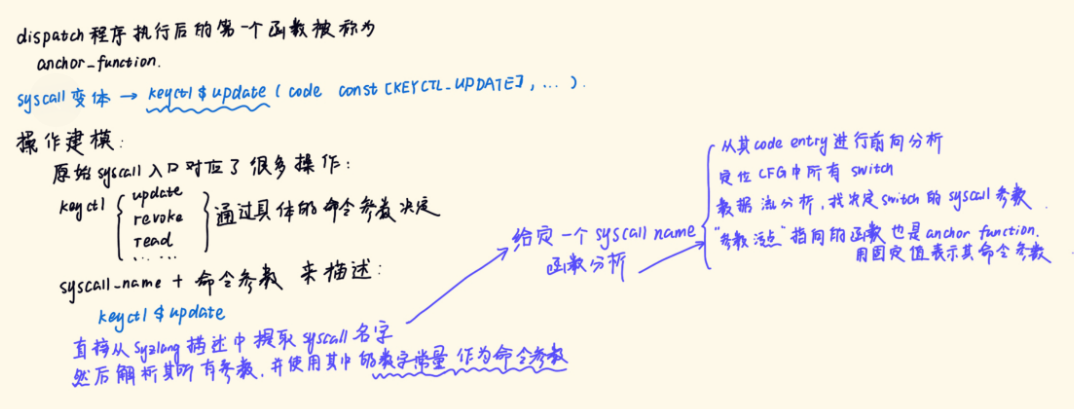 dispatch 程序执行后的第一个函数被称为
anchor_function.
syscall 变体 → keyctl $ update ( code const [KEYCTL_UPDATE] , ... ).
操作建模:
原始 syscall 入口对应了很多操作:
keyctl { update
revoke
read
...... } 通过具体的命令参数决定
syscall_name + 命令参数 来描述:
keyctl $ update
直接从 Syzlang 描述中提取 syscall 名字
然后解析其所有参数, 并使用其中的数字常量 作为命令参数
给定一个 syscall name
函数分析
从其 code entry 进行前向分析
定位 CFG 中所有 switch
数据流分析, 找决定 switch 的 syscall 参数
"参数污点" 指向的函数也是 anchor function.
用固定值表示其命令参数